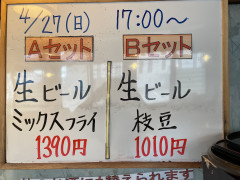 4/27(日) 17:00〜
Aセット Bセット
生ビール 生ビール
ミックスフライ 枝豆
1390円 1010円
に替えられます